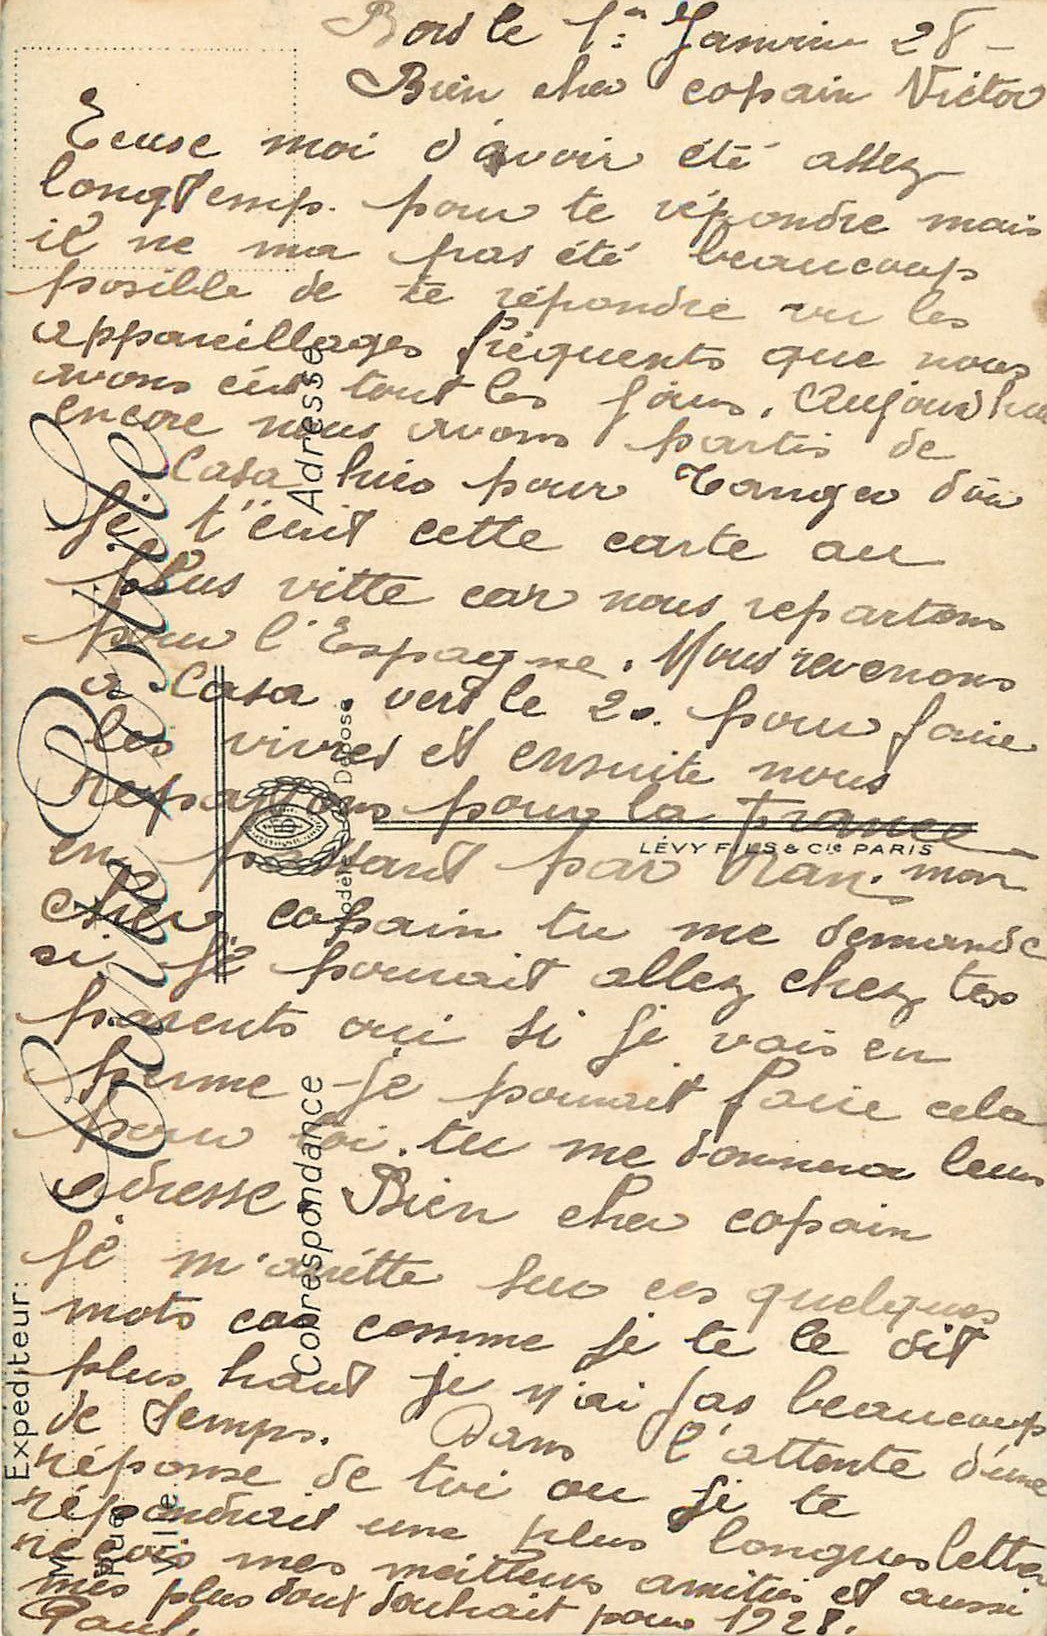 Bord le 1er Janvier 28 -
Bien cher copain Victor
Excuse moi d'avoir été assez
longtemp. pour te répondre mais
il ne ma pas été beaucoup
posible de te répondre vu les
appareillages fréquents que nous
avons tout les jours. Aujourd'hui
encore nous avons partis de
Casa hier pour Tanger d'où
je t'écrit cette carte au
plus vitte car nous repartons
pour l'Espagne. Nous revenons
a Casa. vers le 20. pour faire
les vivres et ensuite nous
repartons pour la France
en passant par Oran. mon
cher copain tu me demande
si je pourrait allez chez tes
parents oui si je vais en
perme je pourrait faire cela
pour toi. tu me donnera leurs
adresse. Bien cher copain
je m'arrètte sur ces quelques
mots car comme je te le dit
plus haut je n'ai pas beaucoup
de temps. Dans l'attente d'une
réponse de toi ou je te
répondrait une plus longues lettre
reçois mes meilleurs amitiés et aussi
mes plus doux souhait pour 1928.
Paul.
Carte Postale
Adresse
Correspondance
Expéditeur:
M
Rue
Ville
Modèle Déposé
LÉVY FILS & Cie PARIS